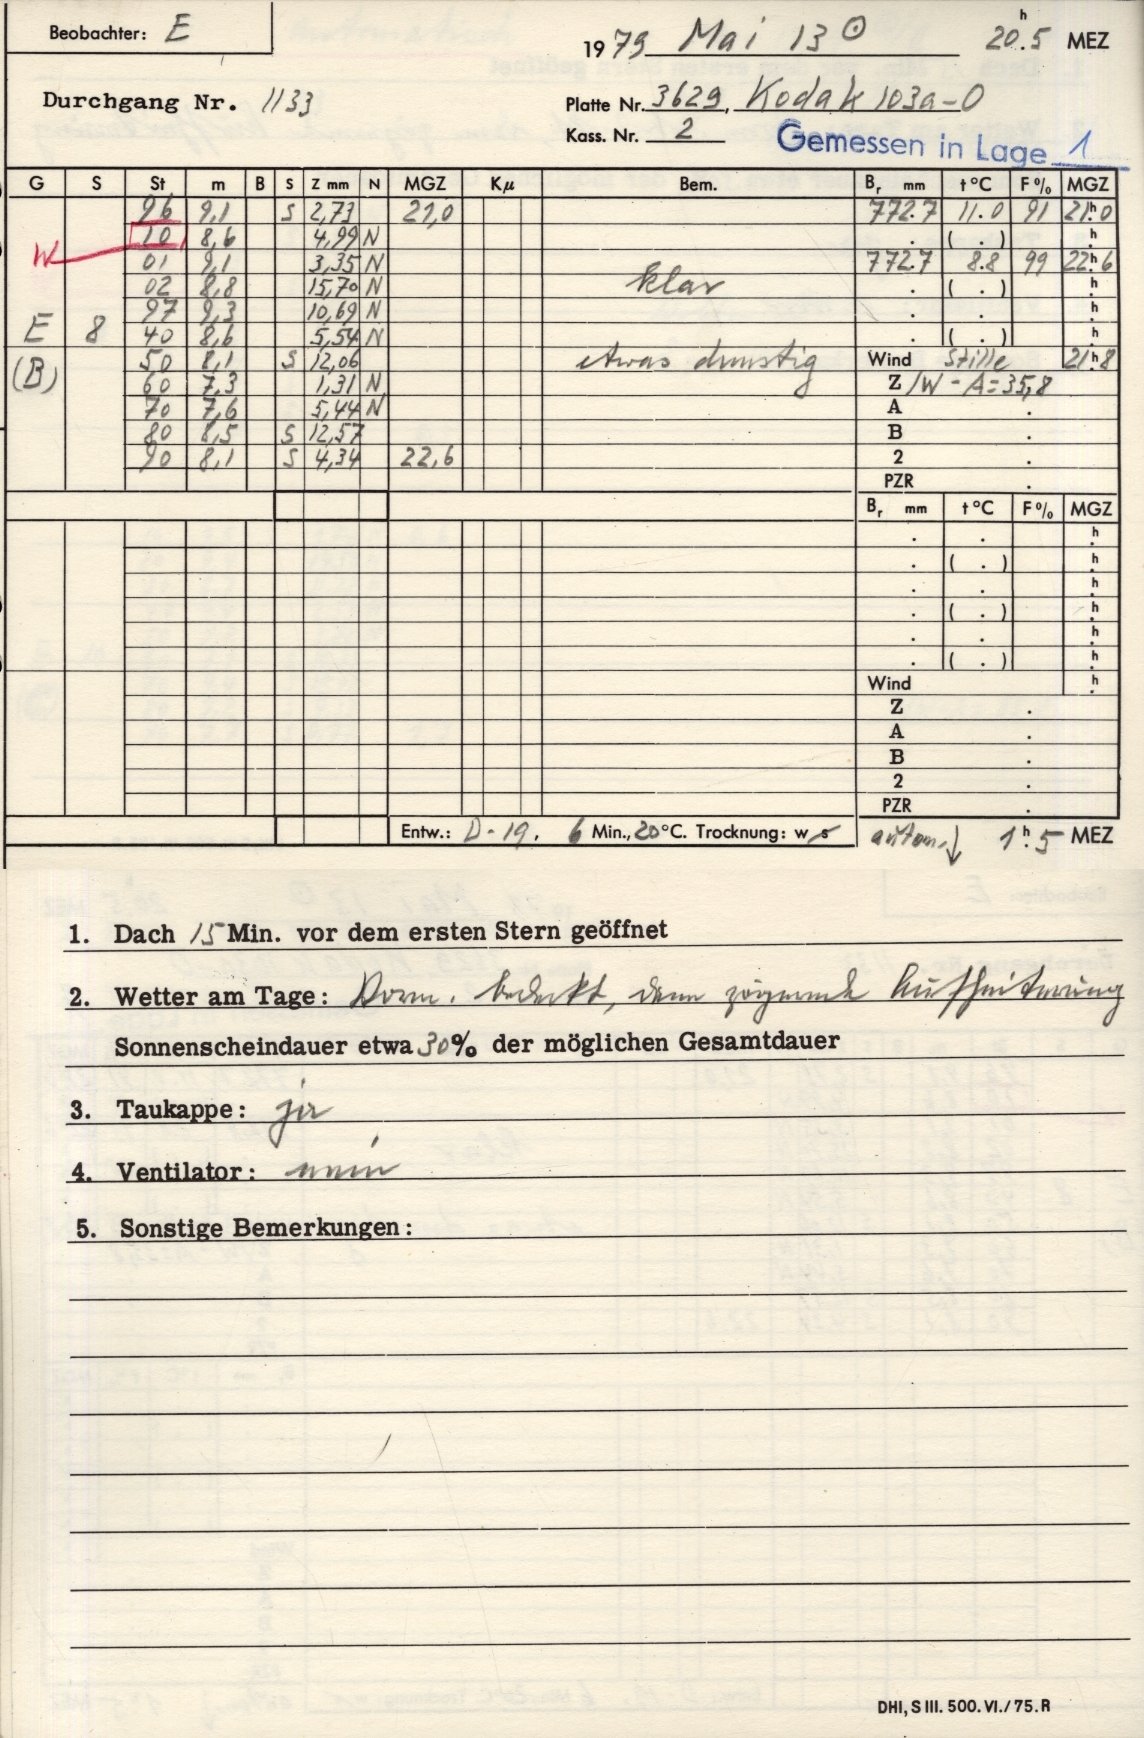 Beobachter: E
1979 Mai 13 ☉ 20ʰ.5 MEZ
Durchgang Nr. 1133
Platte Nr. 3629, Kodak 103a-O
Kass. Nr. 2
Gemessen in Lage 1
G S St m B S Z mm N MGZ Kμ Bem. Bᵣ mm t°C F% MGZ
96 9,1 S 2,73 21,0 772.7 11.0 91 21ʰ.0
W 10 8,6 4,99 N . ( . ) ʰ.
01 9,1 3,35 N 772.7 8.8 99 22ʰ.6
02 8,8 15,70 N klar . ( . ) ʰ.
97 9,3 10,69 N . . ʰ.
E 8 40 8,6 5,54 N . ( . ) ʰ.
(B) 50 8,1 S 12,06 etwas dunstig Wind Stille 21ʰ.8
60 7,3 1,31 N Z /W - A = 35,8
70 7,6 5,44 N A .
80 8,5 S 12,57 B .
90 8,1 S 4,34 22,6 2 .
PZR .
Bᵣ mm t°C F% MGZ
. . ʰ.
. ( . ) ʰ.
. . ʰ.
. ( . ) ʰ.
. . ʰ.
. ( . ) ʰ.
Wind ʰ.
Z .
A .
B .
2 .
PZR .
Entw.: D-19, 6 Min., 20°C. Trocknung: w s autom. ↓ 1ʰ.5 MEZ
1. Dach 15 Min. vor dem ersten Stern geöffnet
2. Wetter am Tage: Vorm. bedeckt, dann zögernde Aufheiterung
Sonnenscheindauer etwa 30% der möglichen Gesamtdauer
3. Taukappe: ja
4. Ventilator: nein
5. Sonstige Bemerkungen:
DHI, S III. 500. VI./75. R